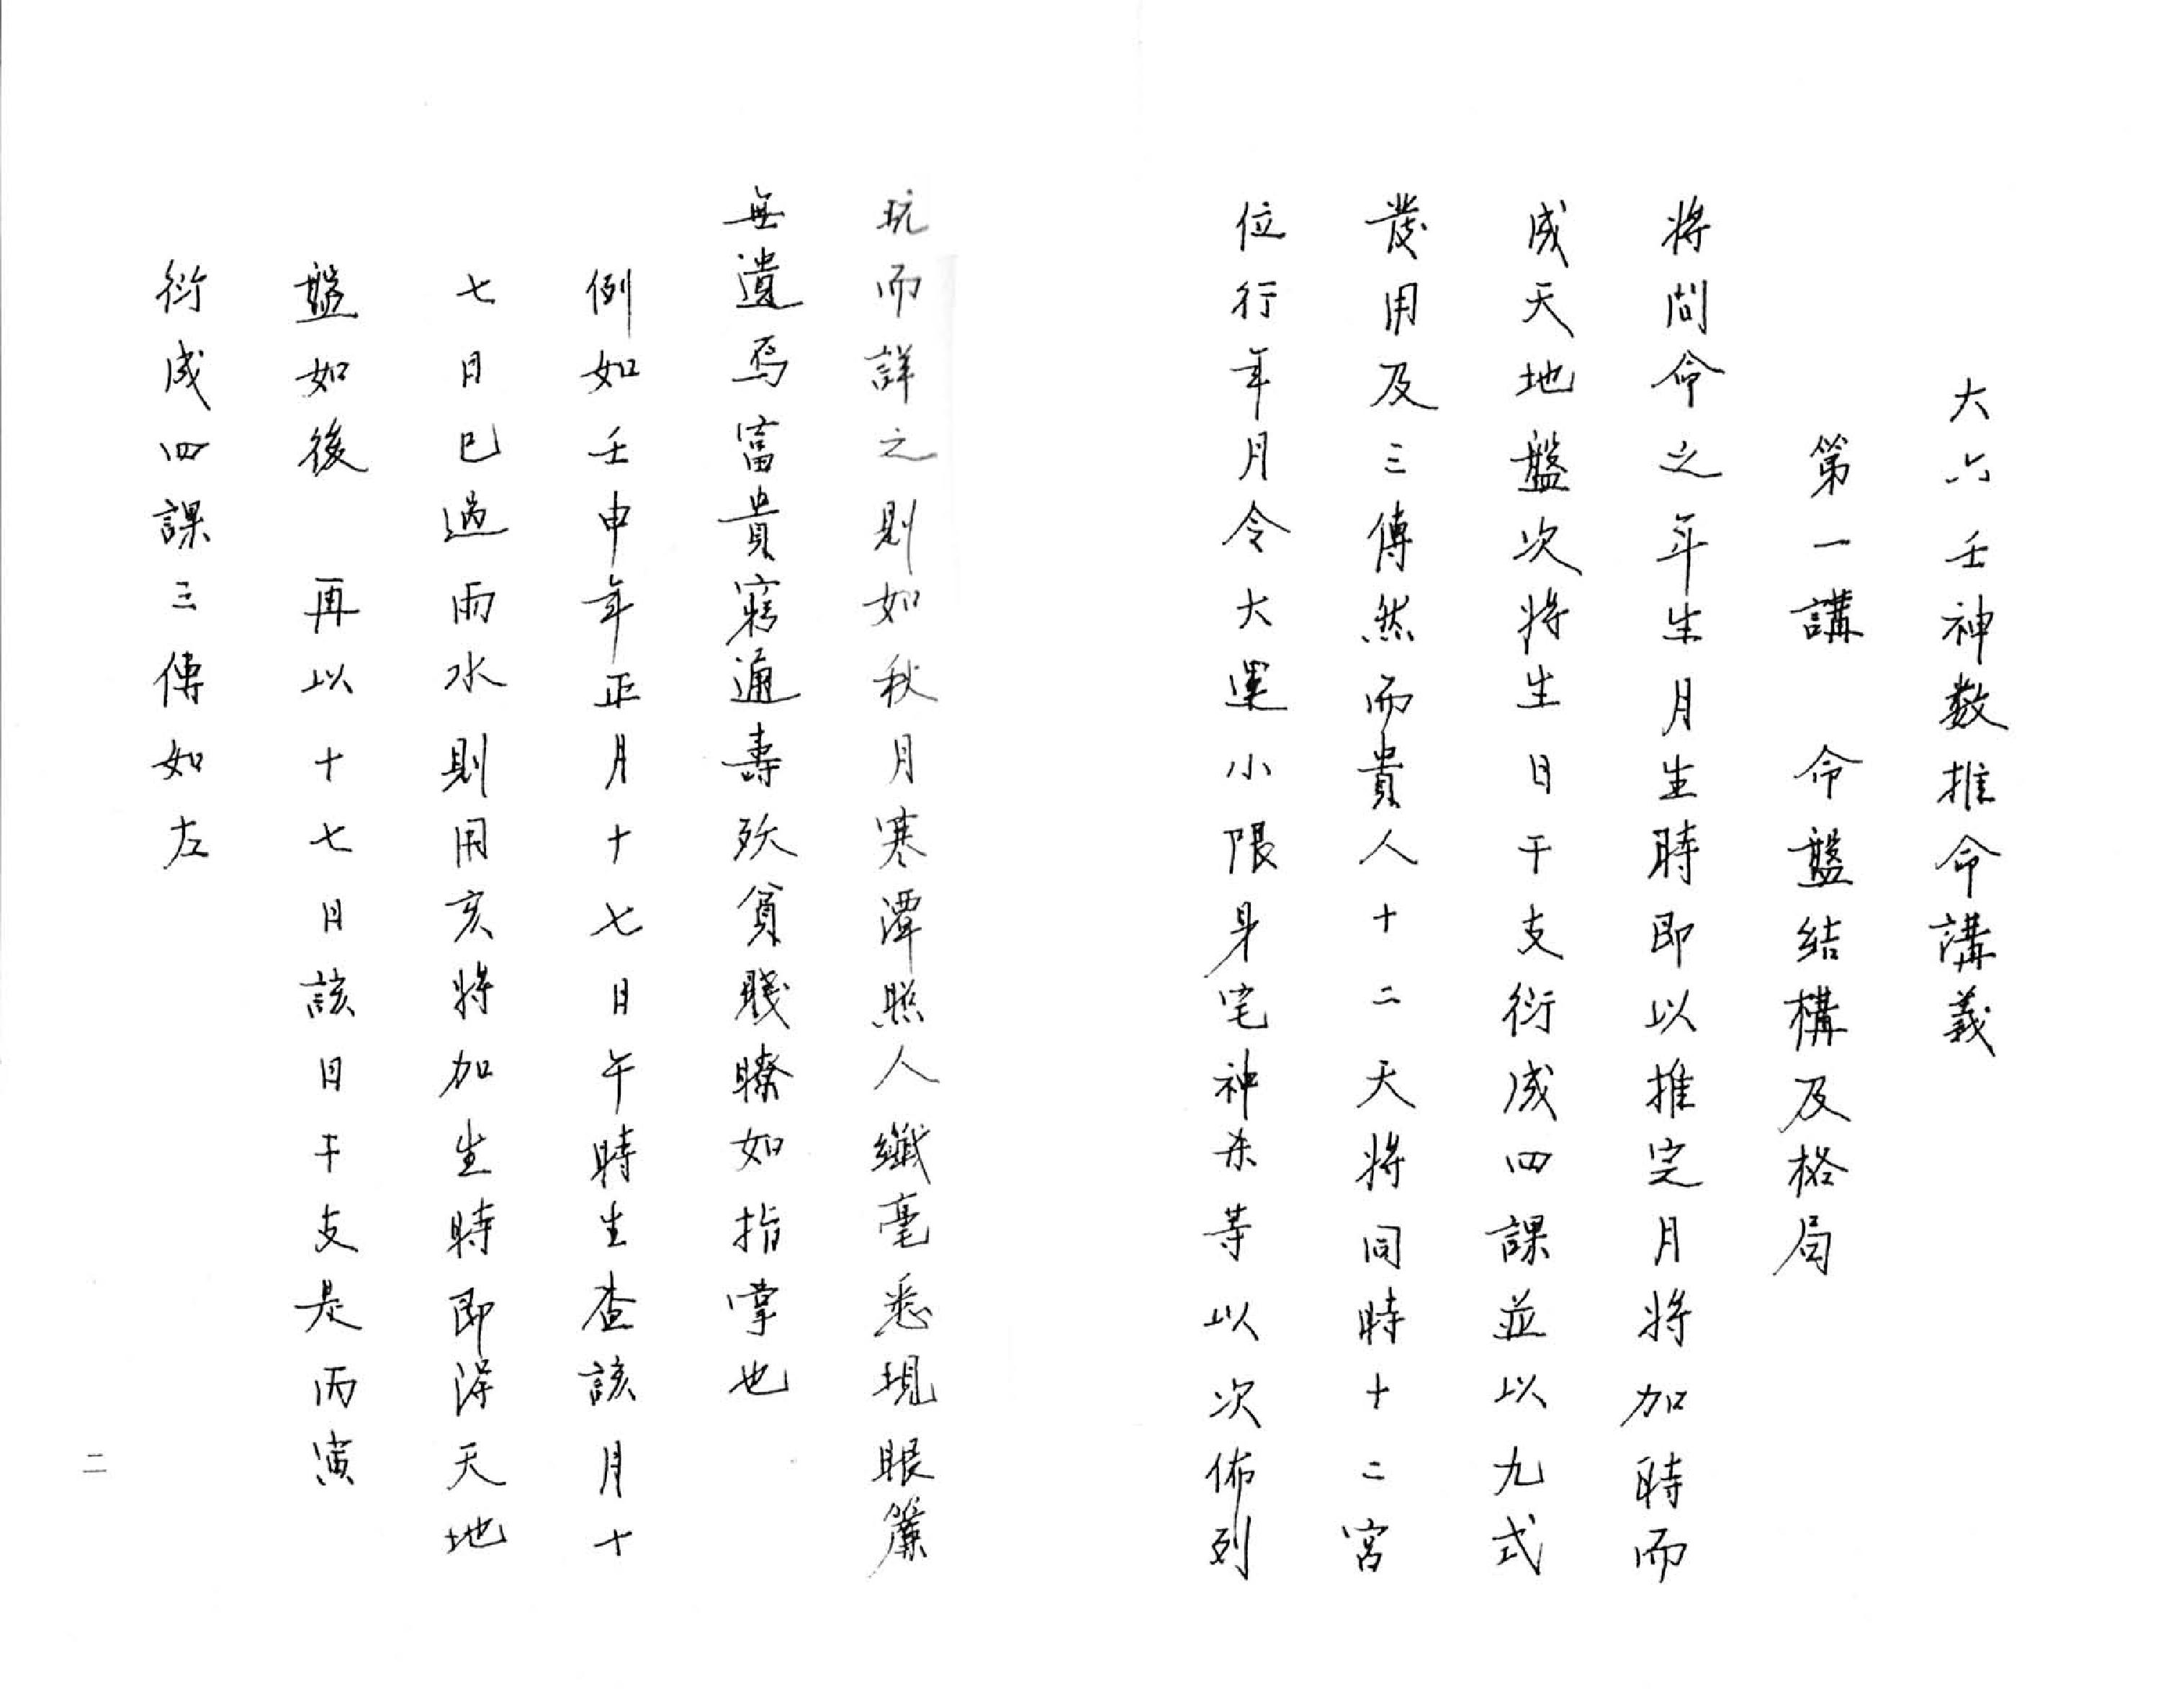 大六壬神数推命講義
第一講　命盤結構及格局
將問命之年生月生時即以推完月將加時而
成天地盤次將生日干支衍成四課並以九式
發用及三傳然而貴人十二天將同時十二宮
位行年月令大運小限身宅神杀等以次佈列
玩而詳之則如秋月寒潭照人纖毫悉現眼簾
無遺焉富貴窮通壽殀貧賤瞭如指掌也
例如壬申年正月十七日午時生查該月十
七日已過雨水則用亥將加生時即得天地
盤如後　再以十七日該日干支是丙寅
衍成四課三傳如左
二